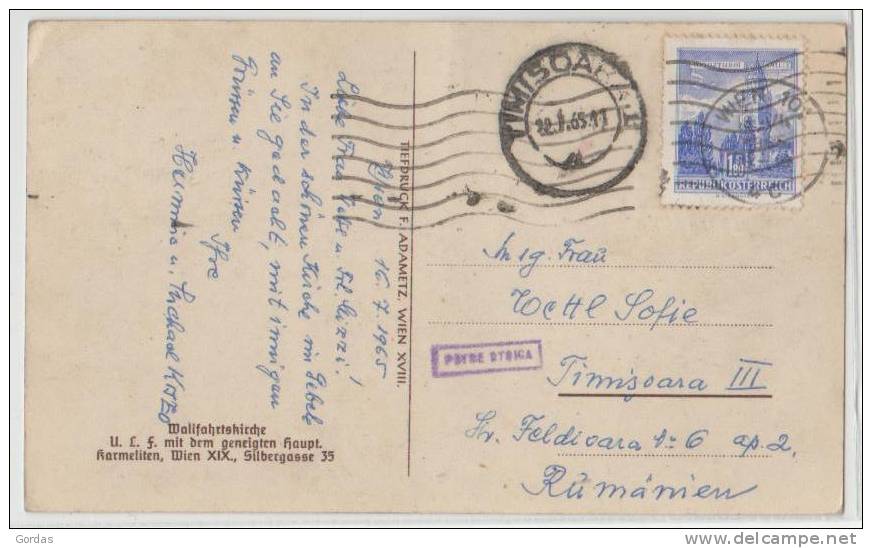 Wien 16.7.1965
Liebe Frau u. Frl. Mizzi!
In der schönen Kirche im Gebet
an Sie gedacht, mit innigen
Grüssen u. Küssen
Ihre
Hermine u. Michael
Wallfahrtskirche
U. L. F. mit dem geneigten Haupt.
Karmeliten, Wien XIX., Silbergasse 35
TIEFDRUCK F. ADAMETZ, WIEN XVIII.
TIMISOARA
WIEN 101
1.80
REPUBLIK ÖSTERREICH
Frau
Wettl Sofie
PETRE STRIGA
Timişoara III
Str. Feldioara 6 ap. 2,
Rumänien
Gordas
delcampe.net